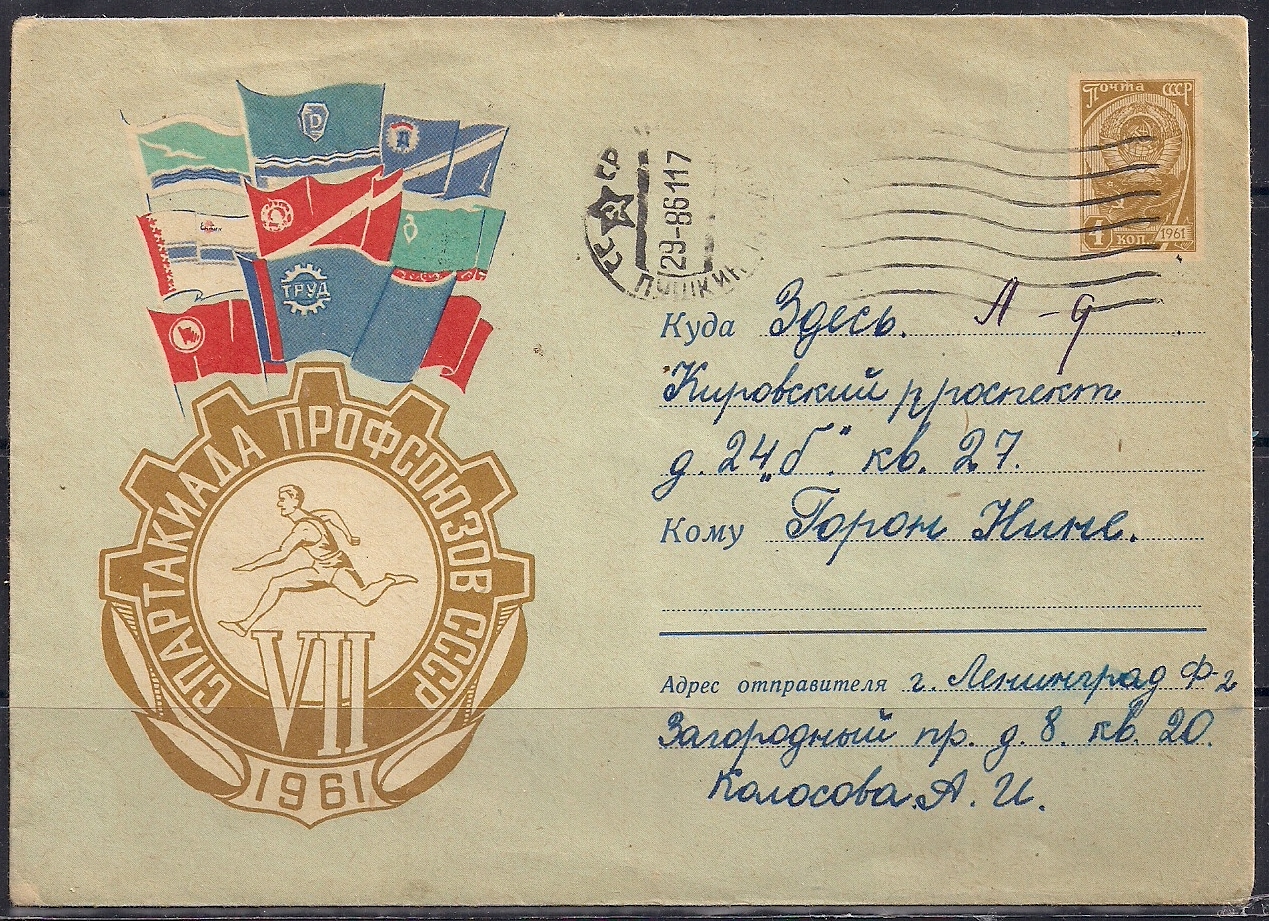 Почта СССР
4 коп 1961
СССР
29-86117
ПУШКИН
Д
ТРУД
СПАРТАКИАДА ПРОФСОЮЗОВ СССР
VII
1961
Куда Здесь. Л-д
Кировский проспект
д. 24 „б". кв. 27.
Кому Горон Нине.
Адрес отправителя г. Ленинград Ф-2
Загородный пр. д. 8. кв. 20.
Колосова. А. И.